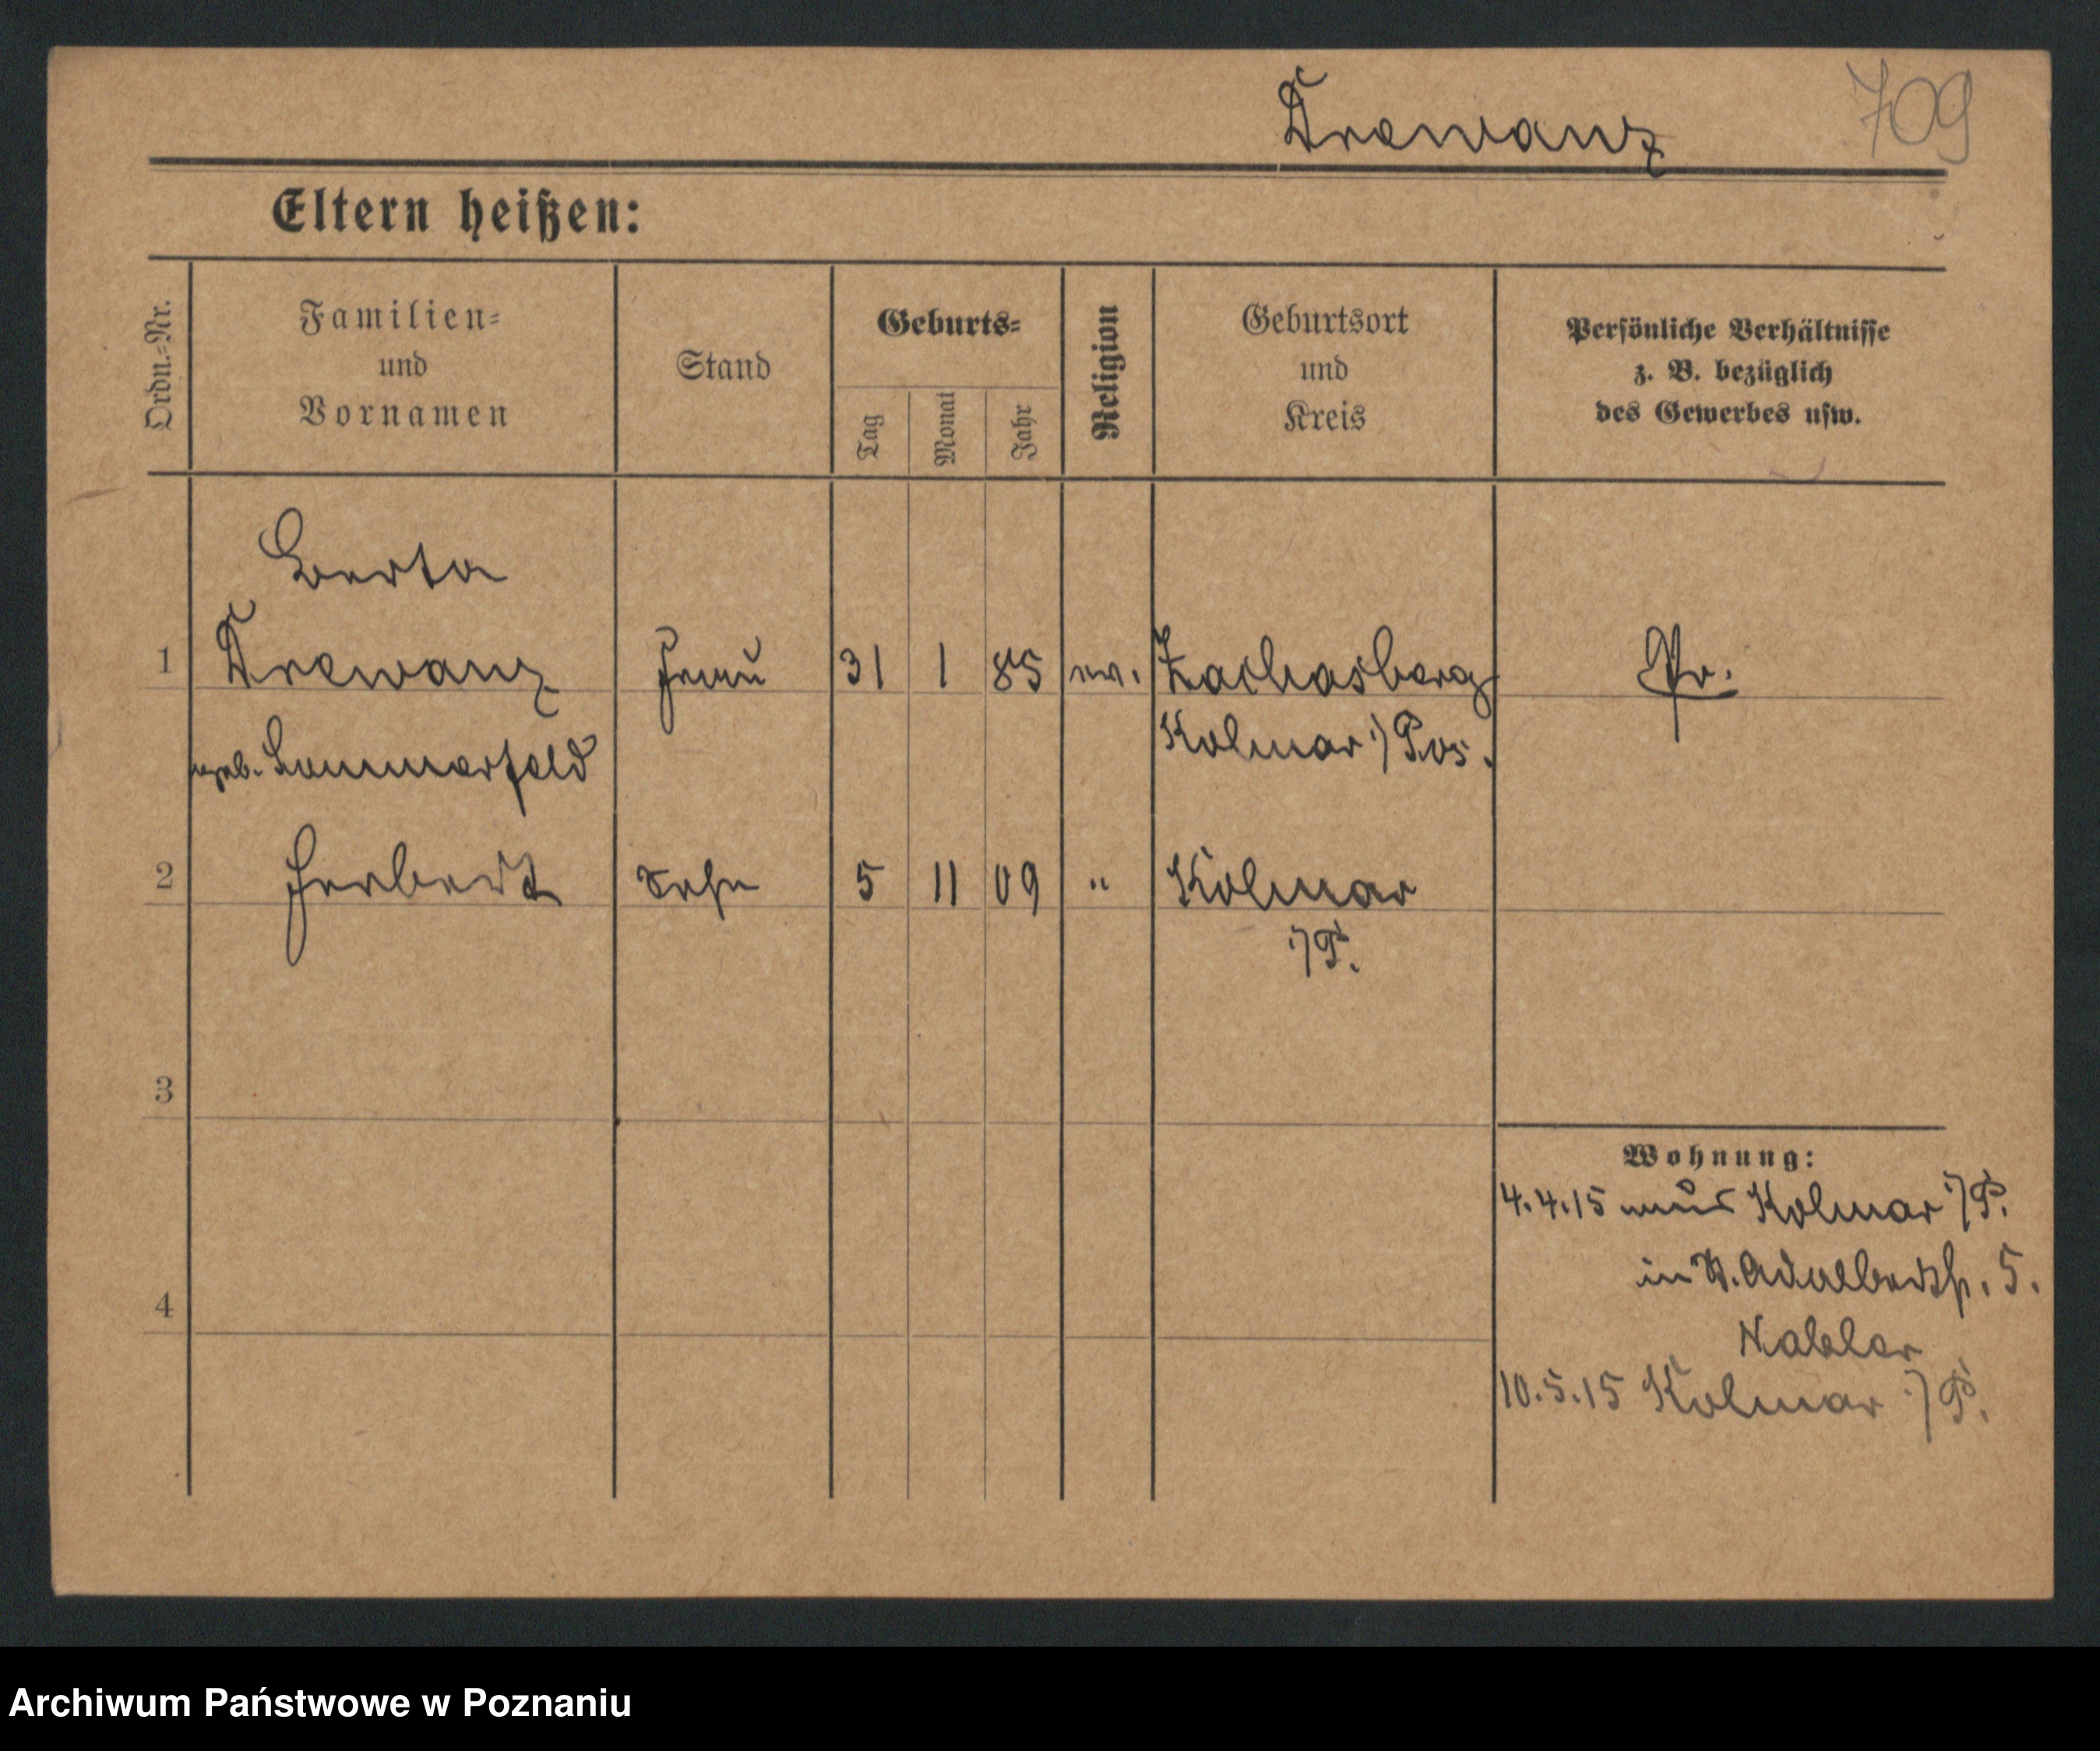 Drewanz 709
Eltern heißen:
Ordn.=Nr.
Familien=
und
Vornamen
Stand
Geburts=
Tag
Monat
Jahr
Religion
Geburtsort
und
Kreis
Persönliche Verhältnisse
z. B. bezüglich
des Gewerbes usw.
Berta
1 Drewanz Frau 31 1 85 ev. Zachasberg Pr.
geb. Sommerfeld Kolmar i/Pos.
2 Herbert Sohn 5 11 09 " Kolmar
i/P.
3
Wohnung:
4.4.15 aus Kolmar i/P.
4 in St. Adalbertstr. 5.
10.5.15 Kolmar i/P.
Archiwum Państwowe w Poznaniu